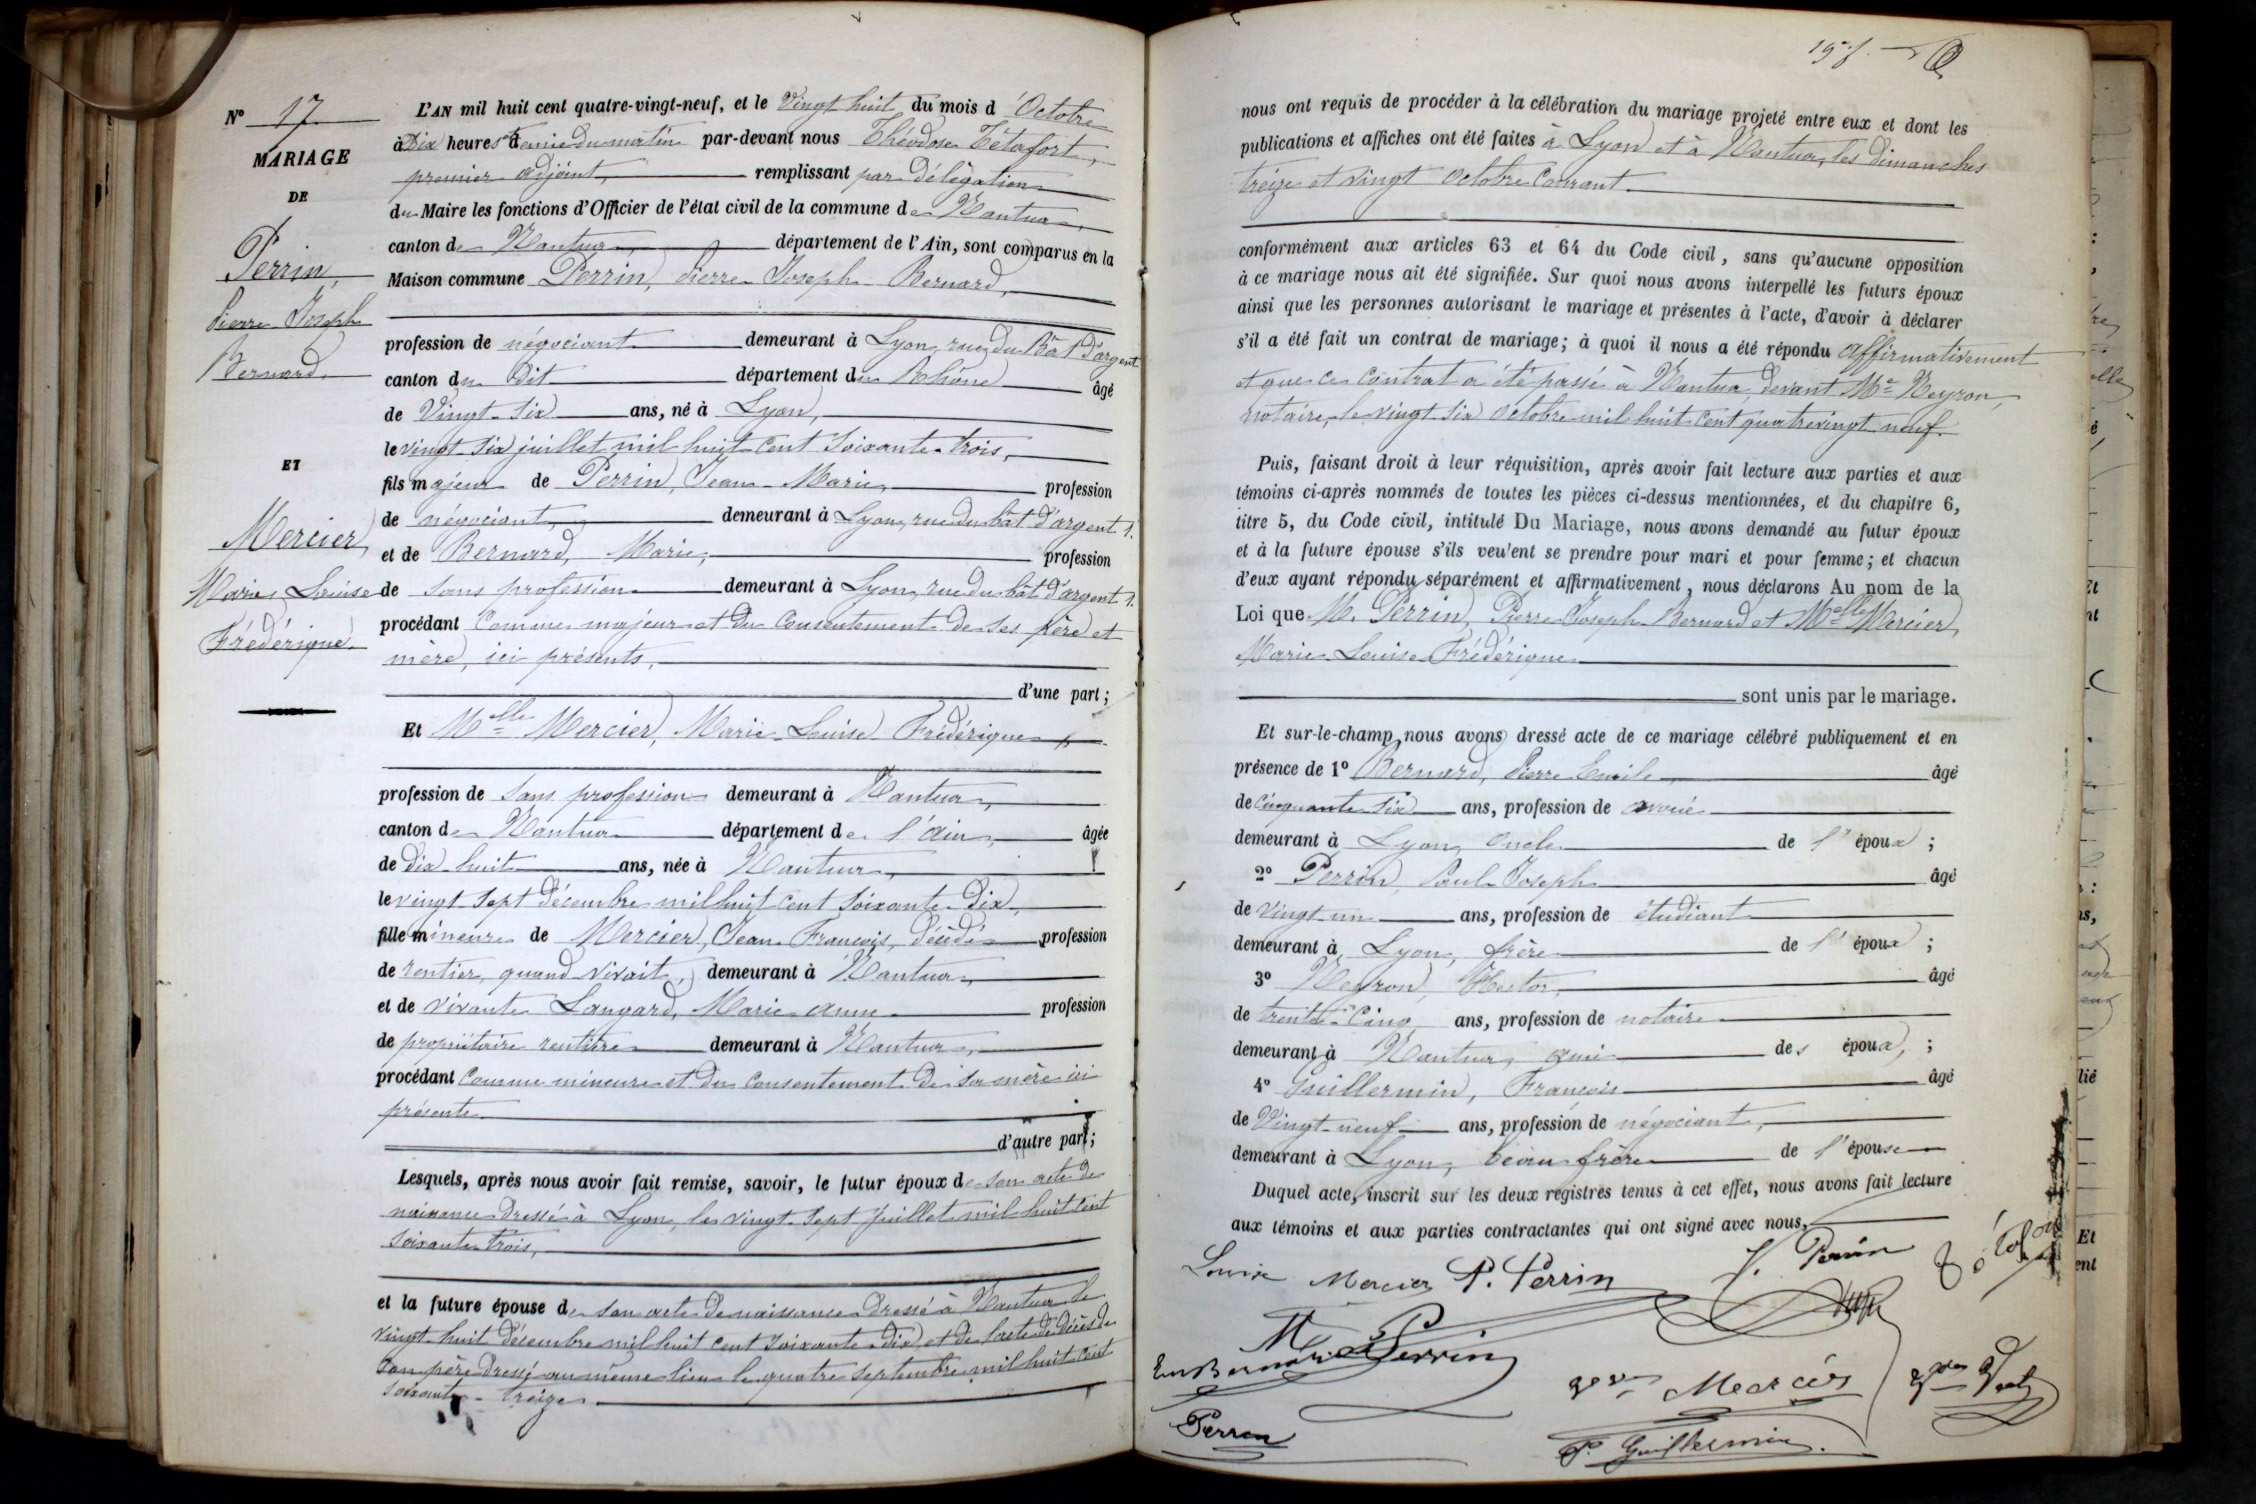 N° 17
MARIAGE
DE
Perrin,
Pierre Joseph
Bernard.
ET
Mercier,
Marie Louise
Frédérique.
L'AN mil huit cent quatre-vingt-neuf, et le Vingt huit du mois d'Octobre
à Dix heures & demie du matin par-devant nous Théodose Tétafort,
premier adjoint, remplissant par délégation
du Maire les fonctions d'Officier de l'état civil de la commune de Nantua,
canton de Nantua, département de l'Ain, sont comparus en la
Maison commune Perrin, Pierre Joseph Bernard,
profession de négociant demeurant à Lyon, rue du Bât d'argent
canton du Dit département du Rhône âgé
de Vingt-six ans, né à Lyon,
le vingt-six juillet mil huit cent soixante-trois,
fils majeur de Perrin, Jean-Marie, profession
de négociant, demeurant à Lyon, rue du bât d'argent 1.
et de Bernard, Marie, profession
de sans profession demeurant à Lyon, rue du bât d'argent 1.
procédant comme majeur et du consentement de ses père et
mère, ici présents,
d'une part;
Et Melle Mercier, Marie-Louise Frédérique
profession de sans profession demeurant à Nantua,
canton de Nantua département de l'ain, âgée
de dix-huit ans, née à Nantua,
le vingt-sept décembre mil huit cent soixante-dix,
fille mineure de Mercier, Jean-François, décédé profession
de rentier, quand vivait, demeurant à Nantua,
et de vivante Langard, Marie-anne profession
de propriétaire rentière demeurant à Nantua,
procédant comme mineure et du consentement de sa mère ici
présente
d'autre part;
Lesquels, après nous avoir fait remise, savoir, le futur époux de son acte de
naissance dressé à Lyon, le vingt-sept juillet mil huit cent
soixante trois,
et la future épouse de son acte de naissance dressé à Nantua le
vingt-huit décembre mil huit cent soixante-dix, et de l'acte de décès de
son père dressé au même lieu le quatre septembre mil huit cent
soixante-treize
nous ont requis de procéder à la célébration du mariage projeté entre eux et dont les
publications et affiches ont été faites à Lyon et à Nantua, les dimanches
treize et vingt octobre courant.
conformément aux articles 63 et 64 du Code civil, sans qu'aucune opposition
à ce mariage nous ait été signifiée. Sur quoi nous avons interpellé les futurs époux
ainsi que les personnes autorisant le mariage et présentes à l'acte, d'avoir à déclarer
s'il a été fait un contrat de mariage; à quoi il nous a été répondu affirmativement
et que ce contrat a été passé à Nantua, devant Me Neyron,
notaire, le vingt six octobre mil huit cent quatre vingt neuf.
Puis, faisant droit à leur réquisition, après avoir fait lecture aux parties et aux
témoins ci-après nommés de toutes les pièces ci-dessus mentionnées, et du chapitre 6,
titre 5, du Code civil, intitulé Du Mariage, nous avons demandé au futur époux
et à la future épouse s'ils veu'ent se prendre pour mari et pour femme; et chacun
d'eux ayant répondu séparément et affirmativement, nous déclarons Au nom de la
Loi que M. Perrin, Pierre Joseph Bernard et Melle Mercier,
Marie-Louise Frédérique
sont unis par le mariage.
Et sur-le-champ nous avons dressé acte de ce mariage célébré publiquement et en
présence de 1° Bernard, Pierre Emile, âgé
de cinquante six ans, profession de avoué
demeurant à Lyon, oncle de l'époux;
2° Perrin, Paul Joseph âgé
de vingt-un ans, profession de étudiant
demeurant à Lyon, frère de l'époux;
3° Neyron, Hector, âgé
de trente-cinq ans, profession de notaire
demeurant à Nantua, ami des époux,;
4° Guillermin, François âgé
de Vingt-neuf ans, profession de négociant,
demeurant à Lyon, beau frère de l'épouse
Duquel acte, inscrit sur les deux registres tenus à cet effet, nous avons fait lecture
aux témoins et aux parties contractantes qui ont signé avec nous,
Louise Mercier P. Perrin J. Perrin
M Perrin
Em Bernard
Mercier
Perron
Guillermin